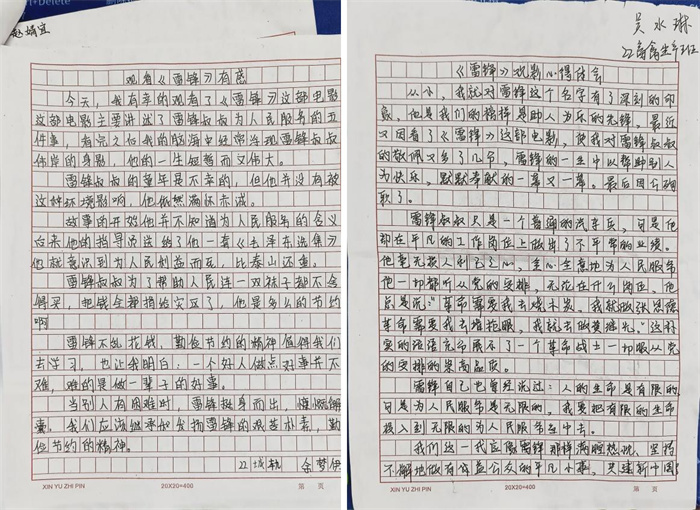 赵婧宜
观看《雷锋》有感
今天，我有幸的观看了《雷锋》这部电影
这部电影主要讲述了雷锋叔叔为人民服务的五
件事，看完之后我的脑海中经常浮现雷锋叔叔
伟岸的身影，他的一生短暂而又伟大。
雷锋叔叔的童年是不幸的，但他并没有被
这种环境影响，他依然满怀赤诚。
故事的开始他并不知道为人民服务的含义
后来他的指导员送给了他一套《毛泽东选集》
他就意识到为人民利益而死，比泰山还重。
雷锋叔叔为了帮助人民连一双袜子都不舍
得买，把钱全都捐给灾区了，他是多么的节约
啊
雷锋不乱花钱，勤俭节约的精神值得我们
去学习，也让我明白：一个好人做点好事并不
难，难的是做一辈子的好事。
当别人有困难时，雷锋挺身而出，慷慨解
囊。我们应该继承和发扬雷锋的艰苦朴素，勤
俭节约的精神。
22城轨
XIN YU ZHI PIN
20X20=400
第 页
吴水琳
22畜禽生产班
《雷锋》观影心得体会
从小，我就对雷锋这个名字有了深刻的印
象，他是我们的榜样是助人为乐的先锋。最近
又因看了《雷锋》这部电影，使我对雷锋叔叔
的敬佩又多了几分，雷锋的一生中以帮助别人
为快乐，默默奉献的一幕又一幕。最后因公殉
职了。
雷锋叔叔只是一个普通的汽车兵，可是他
却在平凡的工作岗位上做出了不平常的业绩。
他毫无损人利己之心，全心全意地为人民服务
他一切都听从党的安排，无论在什么岗位，他
总是说：“革命需要我去烧木炭，我就做张思德
革命需要我去堵枪眼，我就去做黄继光。”这朴
实的话语充分展示了一个革命战士一切服从党
的安排的崇高品质。
雷锋自己也曾经说过：人的生命是有限的，
可是为人民服务是无限的，我要把有限的生命
投入到无限的为人民服务在中去。
我们这一代应像雷锋那样满腔热忱、坚持
不懈地做有益公众的平凡小事，共建新中国
XIN YU ZHI PIN
20X20=400
第 页